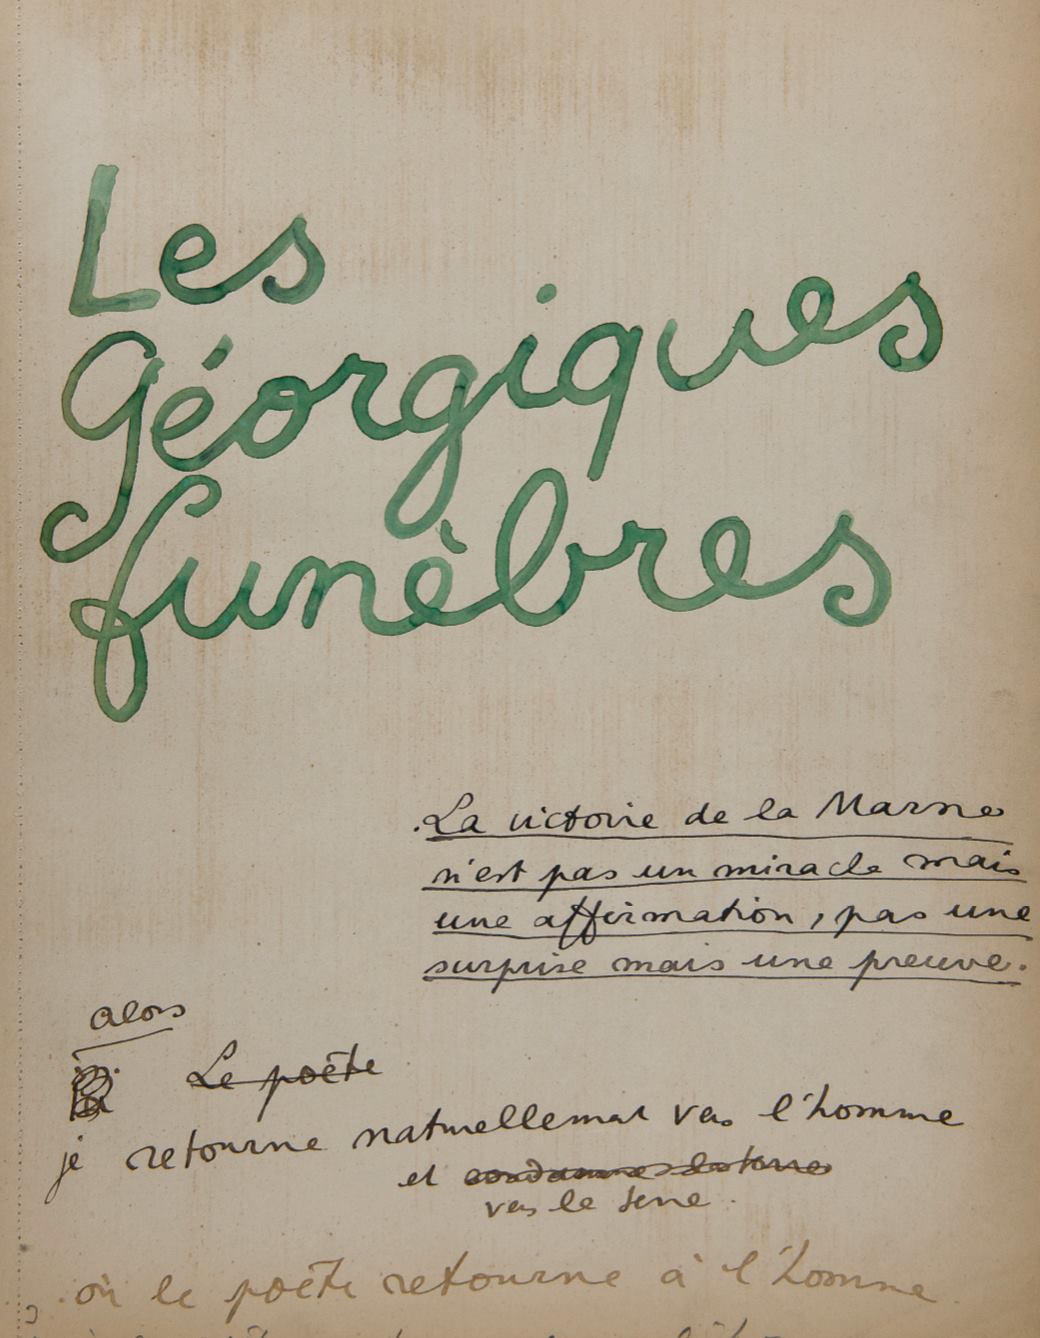 Les
Géorgiques
funèbres
La victoire de la Marne
n'est pas un miracle mais
une affirmation, pas une
surprise mais une preuve.
alors
Le poëte
je retourne naturellement vers l'homme
et
vers le
où le poëte retourne à l'homme